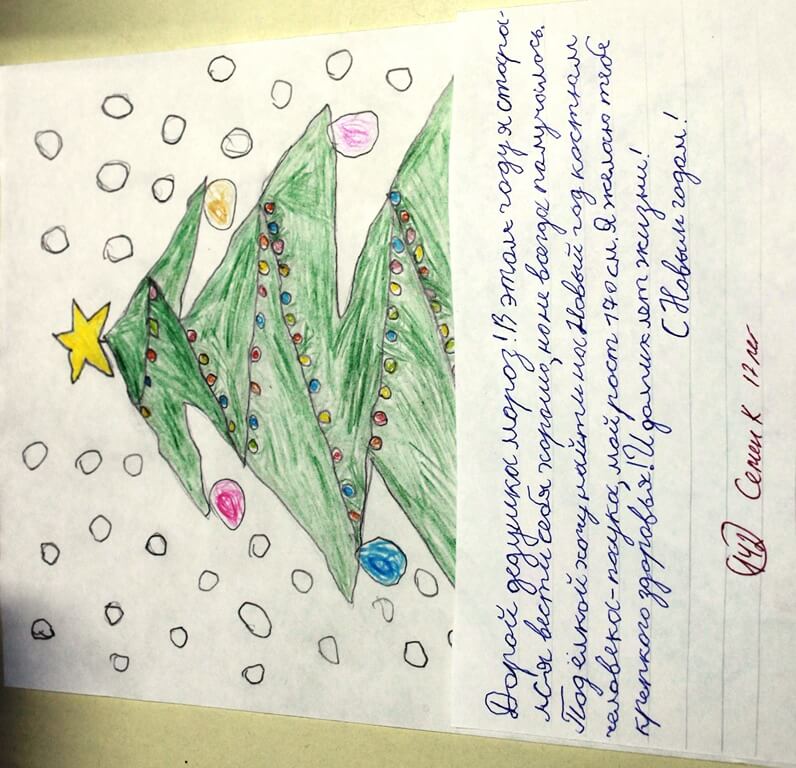 Дорой дедушка мороз! В этом году я стара-
лся вести себя хорошо, но не всегда получалось.
Под ёлкой хочу найти на Новый год костюм
человека-паука, мой рост 170 см. Я желаю тебе
крепкого здоровья! И долгих лет жизни!
С Новым годом!
142 Семен К 17 лет